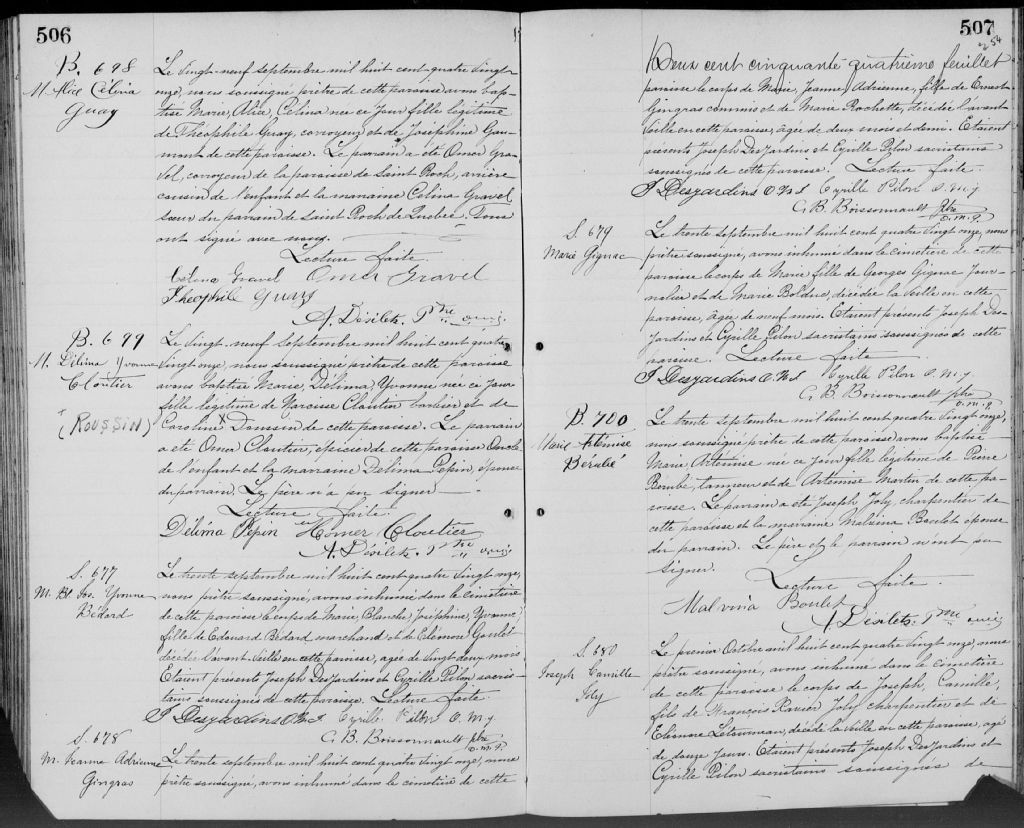 506
B. 698
M. Alice Célina
Guay
Le vingt-neuf septembre mil huit cent quatre vingt
onze, nous soussigné prêtre de cette paroisse avons bap-
tisé Marie, Alice, Célina née ce jour fille légitime
de Théophile Guay, corroyeur et de Joséphine Gau-
mont de cette paroisse. Le parrain a été Omer Gra-
vel, corroyeur de la paroisse de Saint Roch, arrière
cousin de l'enfant et la marraine Celina Gravel
sœur du parrain de Saint Roch de Québec. Tous
ont signé avec nous.
Lecture faite.
Célina Gravel Omer Gravel
Théophile Guay
A. Désilets. Ptre
B. 699
M. Délima Yvonne
Cloutier
(ROUSSIN)
Le vingt-neuf septembre mil huit cent quatre
vingt onze, nous soussigné prêtre de cette paroisse
avons baptisé Marie, Délima, Yvonne née ce jour
fille légitime de Narcisse Cloutier barbier et de
Caroline Doussin de cette paroisse. Le parrain
a été Omer Cloutier, épicier de cette paroisse Oncle
de l'enfant et la marraine Délima Pepin, épouse
du parrain. Le père n'a pu signer
Lecture faite.
Délima Pépin Homer Cloutier
A. Désilets. Ptre
S. 677
M. Bl. Jos. Yvonne
Bédard
Le trente septembre mil huit cent quatre vingt onze,
nous prêtre soussigné, avons inhumé dans le cimetière
de cette paroisse le corps de Marie, Blanche, Joséphine, Yvonne,
fille de Edouard Bédard marchand et de Eléonore Goulet
décédée l'avant-veille en cette paroisse, agée de vingt deux mois
Etaient présents Joseph DesJardins et Cyrille Pilon sacris-
tains soussignés de cette paroisse. Lecture faite
J Desjardins O.M.I Cyrille Pilon O.M.J
G. B. Boissonnault ptre
o.m.q.
S. 678
M. Jeanne Adrienne
Gingras
Le trente septembre mil huit cent quatre vingt onze, nous
prêtre soussigné, avons inhumé dans le cimetière de cette
507
254
Deux cent cinquante quatrième feuillet
paroisse le corps de Marie, Jeanne, Adrienne, fille de Ernest
Gingras commis et de Marie Rochette, décédée l'avant
veille en cette paroisse, âgée de deux mois et demi. Etaient
présents Joseph DesJardins et Cyrille Pilon sacristains
soussignés de cette paroisse. Lecture faite.
J Desjardins O.M.I Cyrille Pilon O.M.J
G. B. Boissonnault ptre
o.m.q.
S. 679
Marie Gignac
Le trente septembre mil huit cent quatre vingt onze, nous
prêtre soussigné, avons inhumé dans le cimetière de cette
paroisse le corps de Marie fille de Georges Gignac jour-
nalier et de Marie Bolduc, décédée la veille en cette
paroisse, âgée de neuf mois. Etaient présents Joseph Des-
Jardins et Cyrille Pilon sacristains soussignés de cette
paroisse. Lecture faite
J Desjardins O.M.I Cyrille Pilon O.M.J
G. B. Boissonnault ptre
o.m.q.
B. 700
Marie Artémise
Bérubé
Le trente septembre mil huit cent quatre vingt onze,
nous soussigné prêtre de cette paroisse avons baptisé
Marie, Artémise née ce jour fille légitime de Pierre
Bérubé, tanneur et de Artémise Martin de cette pa-
roisse. Le parrain a été Joseph Joly charpentier de
cette paroisse et la marraine Malvina Boulet épouse
du parrain. Le père et le parrain n'ont su
signer.
Lecture faite.
Malvina Boulet
A Désilets. Ptre
S. 680
Joseph Camille
Joly
Le premier Octobre mil huit cent quatre vingt onze, nous
prêtre soussigné, avons inhumé dans le cimetière
de cette paroisse le corps de Joseph, Camille,
fils de François Xavier Joly charpentier et de
Eléonore Letourneau, décédé la veille en cette paroisse, agé
de douze jours. Etaient présents Joseph DesJardins et
Cyrille Pilon sacristains soussignés de